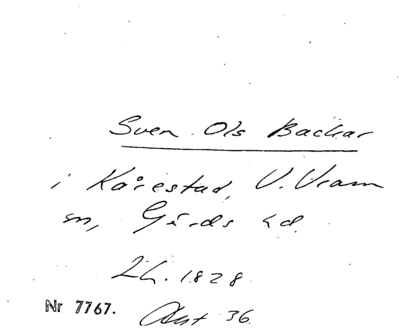 Sven Ols Backar
i Kårestad, V. Vram
sn, Gärds hd.
Lh. 1828
Nr 7767. Akt 36.